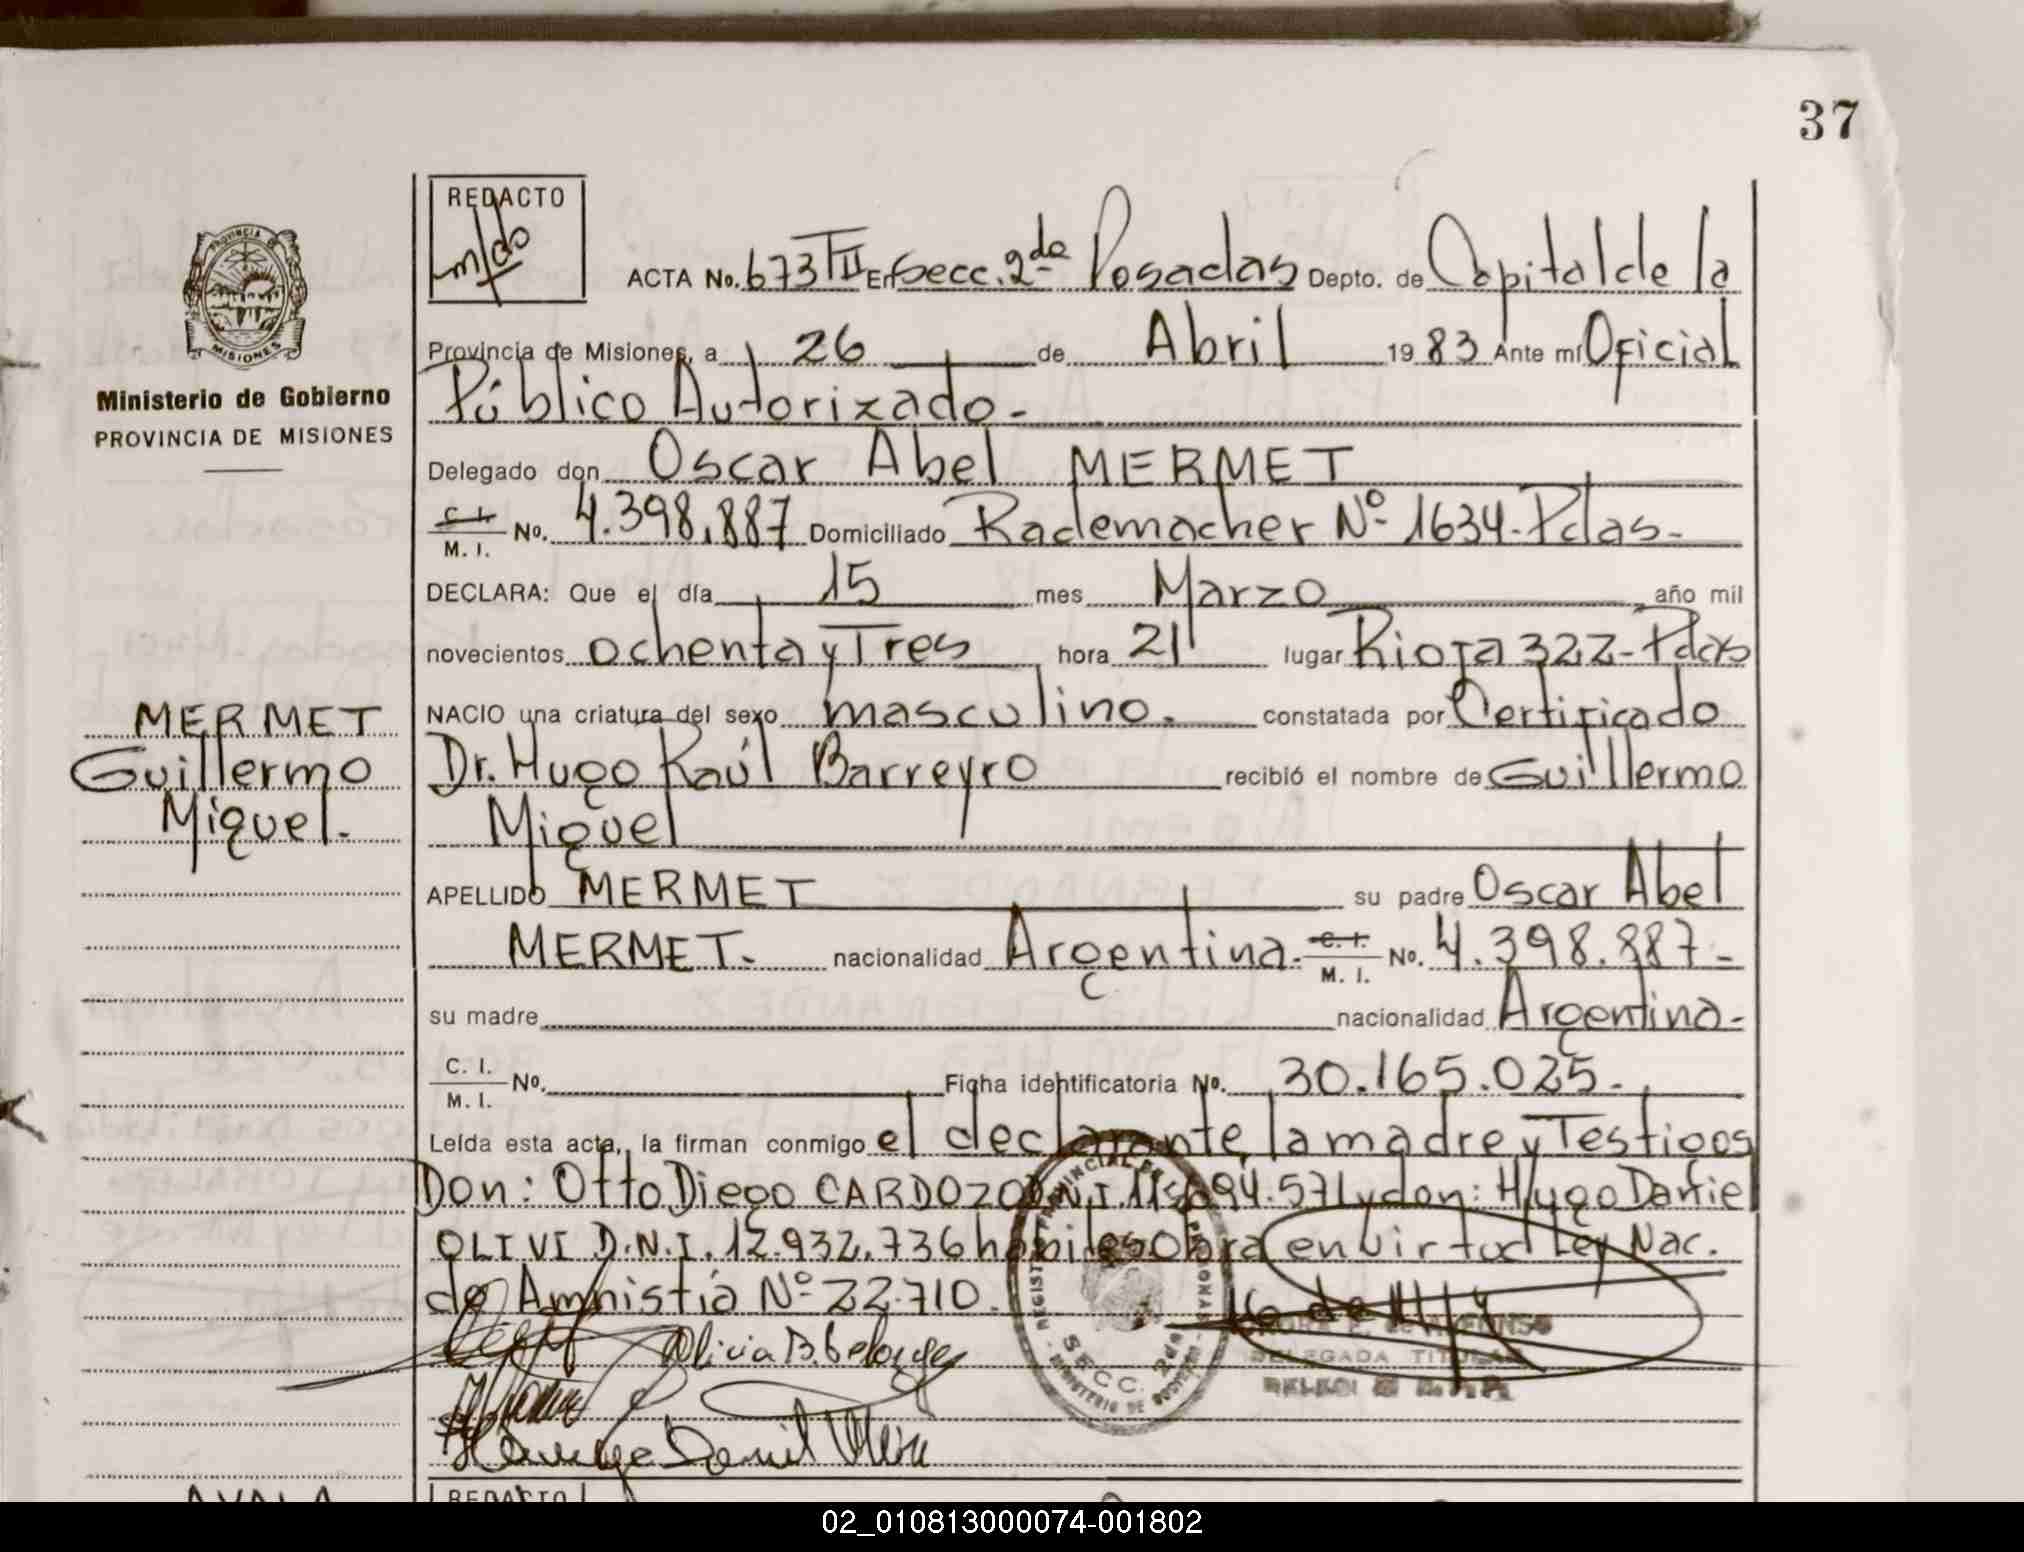 37
REDACTO
PROVINCIA DE
MISIONES
ACTA No. 673 TII En Secc. 2da Posadas Depto. de Capital de la
Provincia de Misiones, a 26 de Abril 1983 Ante mí Oficial
Ministerio de Gobierno
Público Autorizado.-
PROVINCIA DE MISIONES
Delegado don Oscar Abel MERMET
C. I.
M. I. No. 4.398.887 Domiciliado Rademacher Nº 1634-Pdas-
DECLARA: Que el día 15 mes Marzo año mil
novecientos ochenta y Tres hora 21 lugar Rioja 322-Pdas
MERMET
Guillermo
Miguel.
NACIO una criatura del sexo masculino. constatada por Certificado
Dr. Hugo Raúl Barreyro recibió el nombre de Guillermo
Miguel
APELLIDO MERMET su padre Oscar Abel
MERMET. nacionalidad Argentina. C. I. M. I. No. 4.398.887-
su madre nacionalidad Argentina-
C. I.
M. I. No. Ficha identificatoria No. 30.165.025.
Leída esta acta, la firman conmigo el declarante, la madre y Testigos
Don: Otto Diego CARDOZO D.N.I. 11.694.571 y don: Hugo Daniel
OLIVI D.N.I. 12.932.736 hábiles Obra en Virtud Ley Nac.
de Amnistía Nº 22.710.
Alicia B.
DELEGADA TITULAR
SECC. 2da
MINISTERIO DE GOBIERNO
Daniel
AYALA
REDACTO
02_010813000074-001802